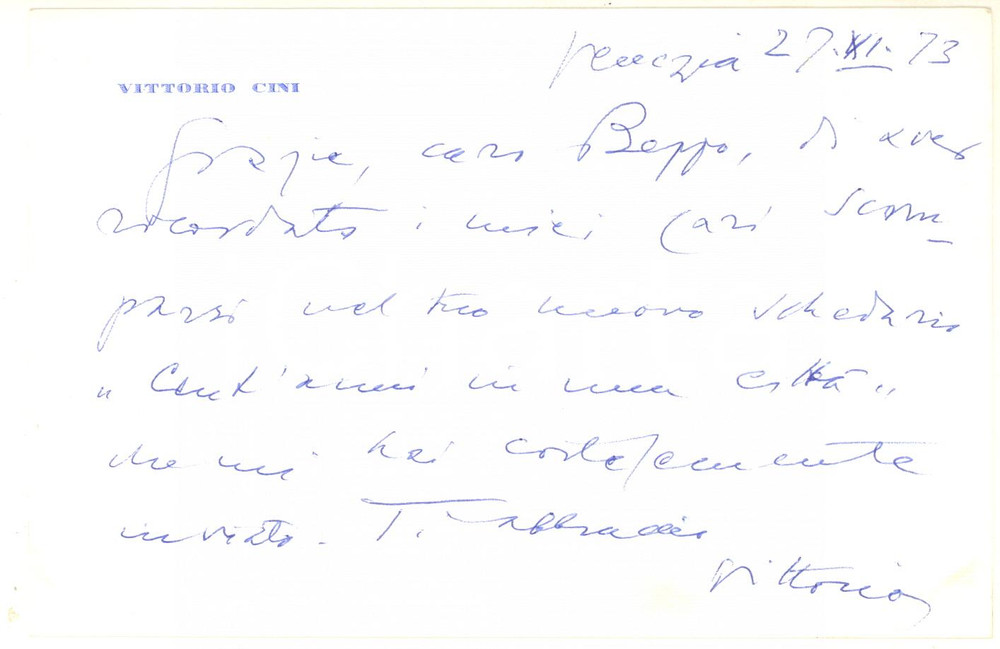 Venezia 27.XI.73
VITTORIO CINI
Grazie, caro Beppo, di aver
ricordato i miei cari scom-
parsi nel tuo nuovo schedario
"Cent'anni in una città"
che mi hai cortesemente
inviato. Ti abbraccio
Vittorio